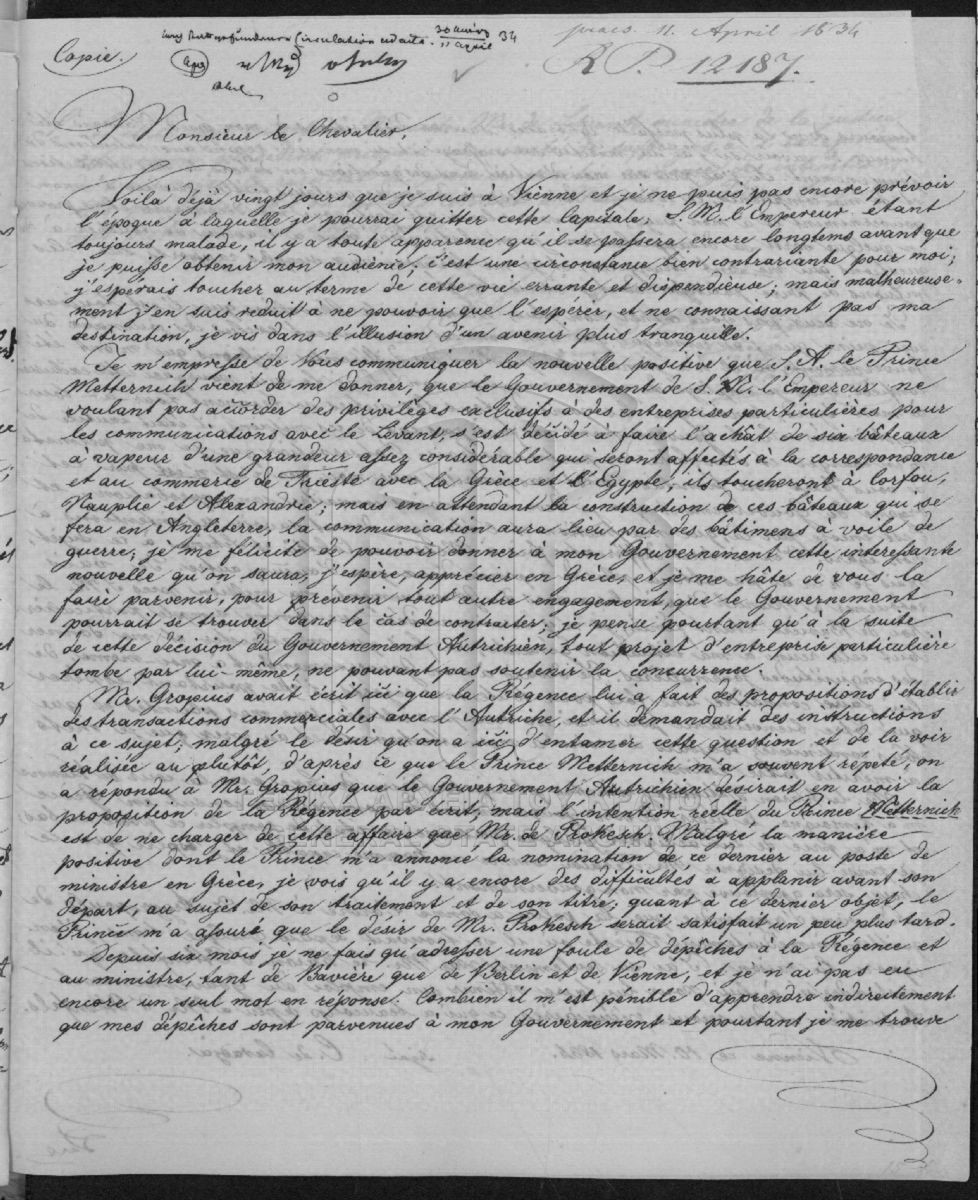 Circulation ad acta. 30 März / 11 April 34
praes. 11. April 1834
Copie.
R P. 12187.
Monsieur le Chevalier,
Voilà déjà vingt jours que je suis à Vienne et je ne puis pas encore prévoir
l'époque à laquelle je pourrai quitter cette Capitale; S. M. l'Empereur étant
toujours malade, il y a toute apparence qu'il se passera encore longtems avant que
je puisse obtenir mon audience; c'est une circonstance bien contrariante pour moi;
j'espérais toucher au terme de cette vie errante et dispendieuse; mais malheureuse-
ment j'en suis réduit à ne pouvoir que l'espérer, et ne connaissant pas ma
destination, je vis dans l'illusion d'un avenir plus tranquille.
Je m'empresse de Vous communiquer la nouvelle positive que S. A. le Prince
Metternich vient de me donner, que le Gouvernement de S. M. l'Empereur ne
voulant pas accorder des privilèges exclusifs a des entreprises particulières pour
les communications avec le Levant, s'est décidé à faire l'achât de six bâteaux
à vapeur d'une grandeur assez considérable qui seront affectés à la correspondance
et au commerce de Trieste avec la Grèce et l'Egypte; ils toucheront à Corfou,
Nauplie et Alexandrie; mais en attendant la construction de ces bâteaux qui se
fera en Angleterre, la communication aura lieu par des bâtimens à voile de
guerre; je me félicite de pouvoir donner à mon Gouvernement cette interessante
nouvelle qu'on saura, j'espère, apprécier en Grèce, et je me hâte de vous la
faire parvenir, pour prévenir tout autre engagement, que le Gouvernement
pourrait se trouver dans le cas de contracter; je pense pourtant qu'à la suite
de cette décision du Gouvernement Autrichien, tout projet d'entreprise particulière
tombe par lui-même, ne pouvant pas soutenir la concurrence.
Mr. Gropius avait écrit ici que la Régence lui a fait des propositions d'établir
des transactions commerciales avec l'Autriche, et il demandait des instructions
à ce sujet; malgré le désir qu'on a ici, d'entamer cette question et de la voir
réalisée au plutôt, d'après ce que le Prince Metternich m'a souvent repeté, on
a répondu à Mr. Gropius que le Gouvernement Autrichien désirait en avoir la
proposition de la Régence par écrit, mais l'intention réelle du Prince Metternich
est de ne charger de cette affaire que Mr. de Prokesch. Malgré la manière
positive dont le Prince m'a annoncé la nomination de ce dernier au poste de
ministre en Grèce, je vois qu'il y a encore des difficultés à applanir avant son
départ, au sujet de son traitement et de son titre; quant à ce dernier objet, le
Prince m'a assuré que le désir de Mr. Prokesch serait satisfait un peu plus tard.
Depuis six mois je ne fais qu'adresser une foule de dépêches à la Régence et
au ministre, tant de Bavière que de Berlin et de Vienne, et je n'ai pas eu
encore un seul mot en réponse. Combien il m'est pénible d'apprendre indirectement
que mes dépêches sont parvenues à mon Gouvernement et pourtant je me trouve